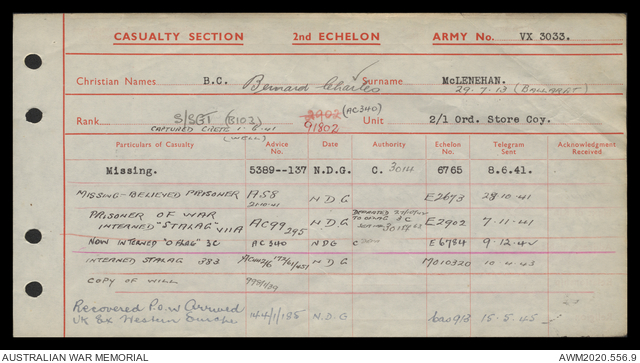 CASUALTY SECTION 2nd ECHELON ARMY No. VX 3033.
Christian Names B.C. Bernard Charles Surname McLENEHAN.
29.7.13 (BALLARAT)
Rank S/SGT (E102) 2902 (AC340) Unit 2/1 Ord. Store Coy.
CAPTURED CRETE 1-6-41 91802
(WELL)
Particulars of Casualty Advice No. Date Authority Echelon No. Telegram Sent Acknowledgment Received
Missing. 5389--137 N.D.G. C. 3014 6765 8.6.41.
MISSING-BELIEVED PRISONER A58 N D G E2673 28.10.41
21.10.41
PRISONER OF WAR
INTERNED "STALAG" VIIA AC99 295 N D G E2902 7.11.41
NOW INTERNED "OFLAG" 3C AC 340 NDG C E6784 9.12.42
INTERNED STALAG 383 N D G 17010320 10.4.43
COPY OF WILL
Recovered P.o.w Arrived 144/1/185 N.D.G 15.5.45
UK Ex Western Europe
AUSTRALIAN WAR MEMORIAL AWM2020.556.9